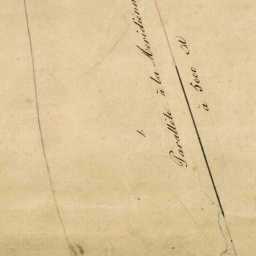 Parallèle à la Meridienne
à 5000